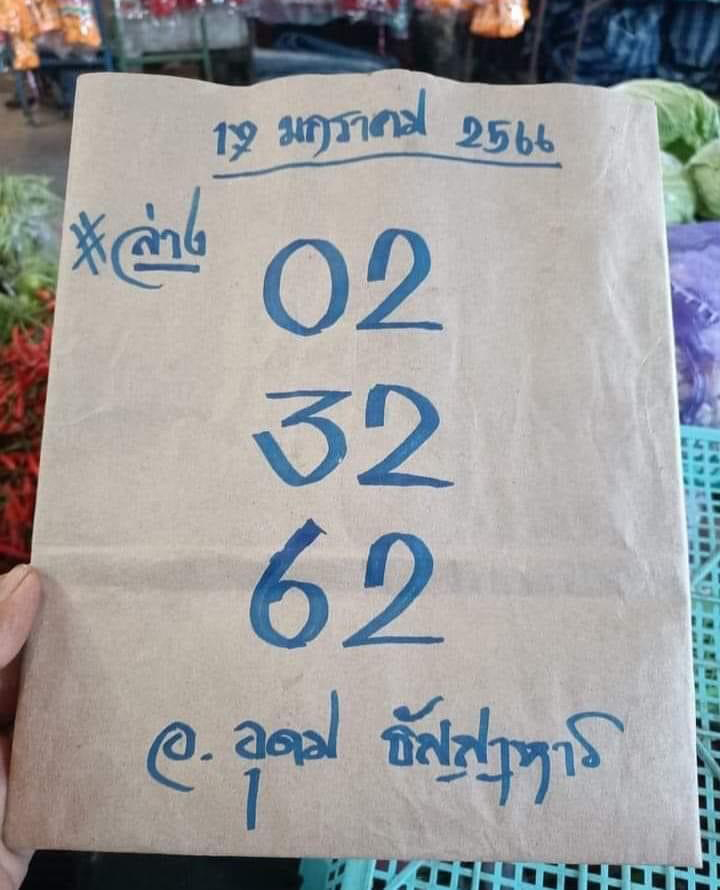 17 มกราคม 2566
#ล่าง
02
32
62
อ. อุดม ธัญญาหาร